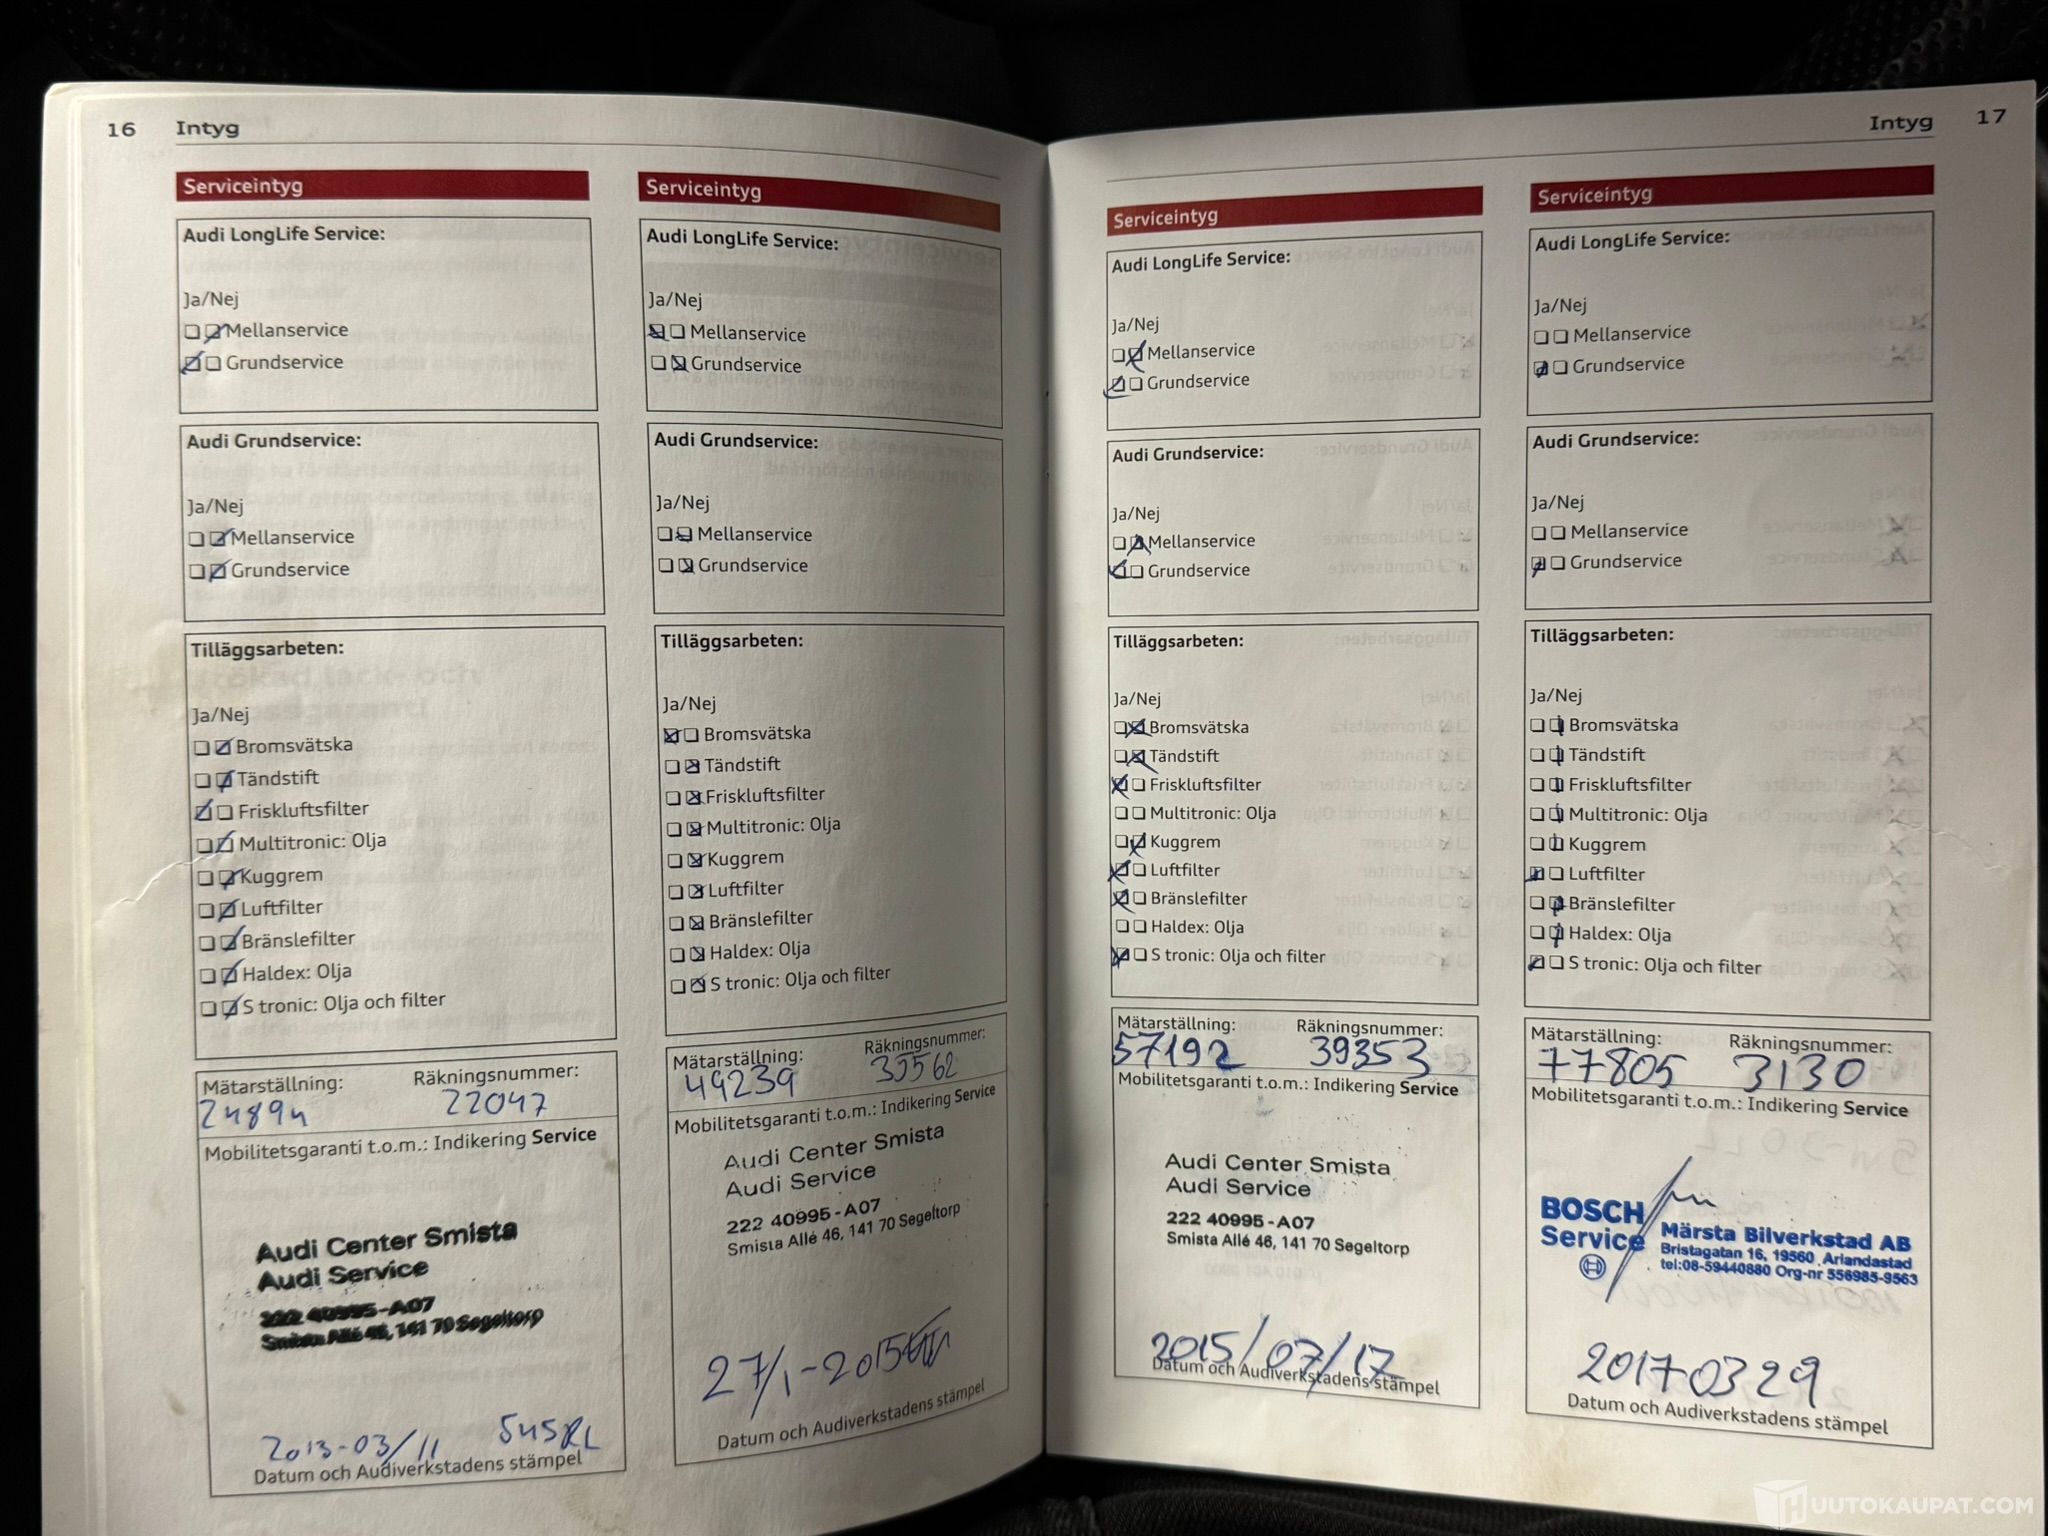 16 Intyg
Serviceintyg
Audi LongLife Service:
Ja/Nej
Mellanservice
Grundservice
Audi Grundservice:
Ja/Nej
Mellanservice
Grundservice
Tilläggsarbeten:
Ja/Nej
Bromsvätska
Tändstift
Friskluftsfilter
Multitronic: Olja
Kuggrem
Luftfilter
Bränslefilter
Haldex: Olja
S tronic: Olja och filter
Mätarställning: Räkningsnummer:
24894 22047
Mobilitetsgaranti t.o.m.: Indikering Service
Audi Center Smista
Audi Service
222 40995-A07
Smista Allé 46, 141 70 Segeltorp
2013-03/11
Datum och Audiverkstadens stämpel
Serviceintyg
Audi LongLife Service:
Ja/Nej
Mellanservice
Grundservice
Audi Grundservice:
Ja/Nej
Mellanservice
Grundservice
Tilläggsarbeten:
Ja/Nej
Bromsvätska
Tändstift
Friskluftsfilter
Multitronic: Olja
Kuggrem
Luftfilter
Bränslefilter
Haldex: Olja
S tronic: Olja och filter
Mätarställning: Räkningsnummer:
49239 35562
Mobilitetsgaranti t.o.m.: Indikering Service
Audi Center Smista
Audi Service
222 40995-A07
Smista Allé 46, 141 70 Segeltorp
27/1-2015
Datum och Audiverkstadens stämpel
Intyg 17
Serviceintyg
Audi LongLife Service:
Ja/Nej
Mellanservice
Grundservice
Audi Grundservice:
Ja/Nej
Mellanservice
Grundservice
Tilläggsarbeten:
Ja/Nej
Bromsvätska
Tändstift
Friskluftsfilter
Multitronic: Olja
Kuggrem
Luftfilter
Bränslefilter
Haldex: Olja
S tronic: Olja och filter
Mätarställning: Räkningsnummer:
57192 39353
Mobilitetsgaranti t.o.m.: Indikering Service
Audi Center Smista
Audi Service
222 40995-A07
Smista Allé 46, 141 70 Segeltorp
2015/07/17
Datum och Audiverkstadens stämpel
Serviceintyg
Audi LongLife Service:
Ja/Nej
Mellanservice
Grundservice
Audi Grundservice:
Ja/Nej
Mellanservice
Grundservice
Tilläggsarbeten:
Ja/Nej
Bromsvätska
Tändstift
Friskluftsfilter
Multitronic: Olja
Kuggrem
Luftfilter
Bränslefilter
Haldex: Olja
S tronic: Olja och filter
Mätarställning: Räkningsnummer:
77805 3130
Mobilitetsgaranti t.o.m.: Indikering Service
BOSCH
Service
Märsta Bilverkstad AB
Bristagatan 16, 19560 Arlandastad
tel:08-59440880 Org-nr 556985-9563
20170329
Datum och Audiverkstadens stämpel
HUUTOKAUPAT.COM